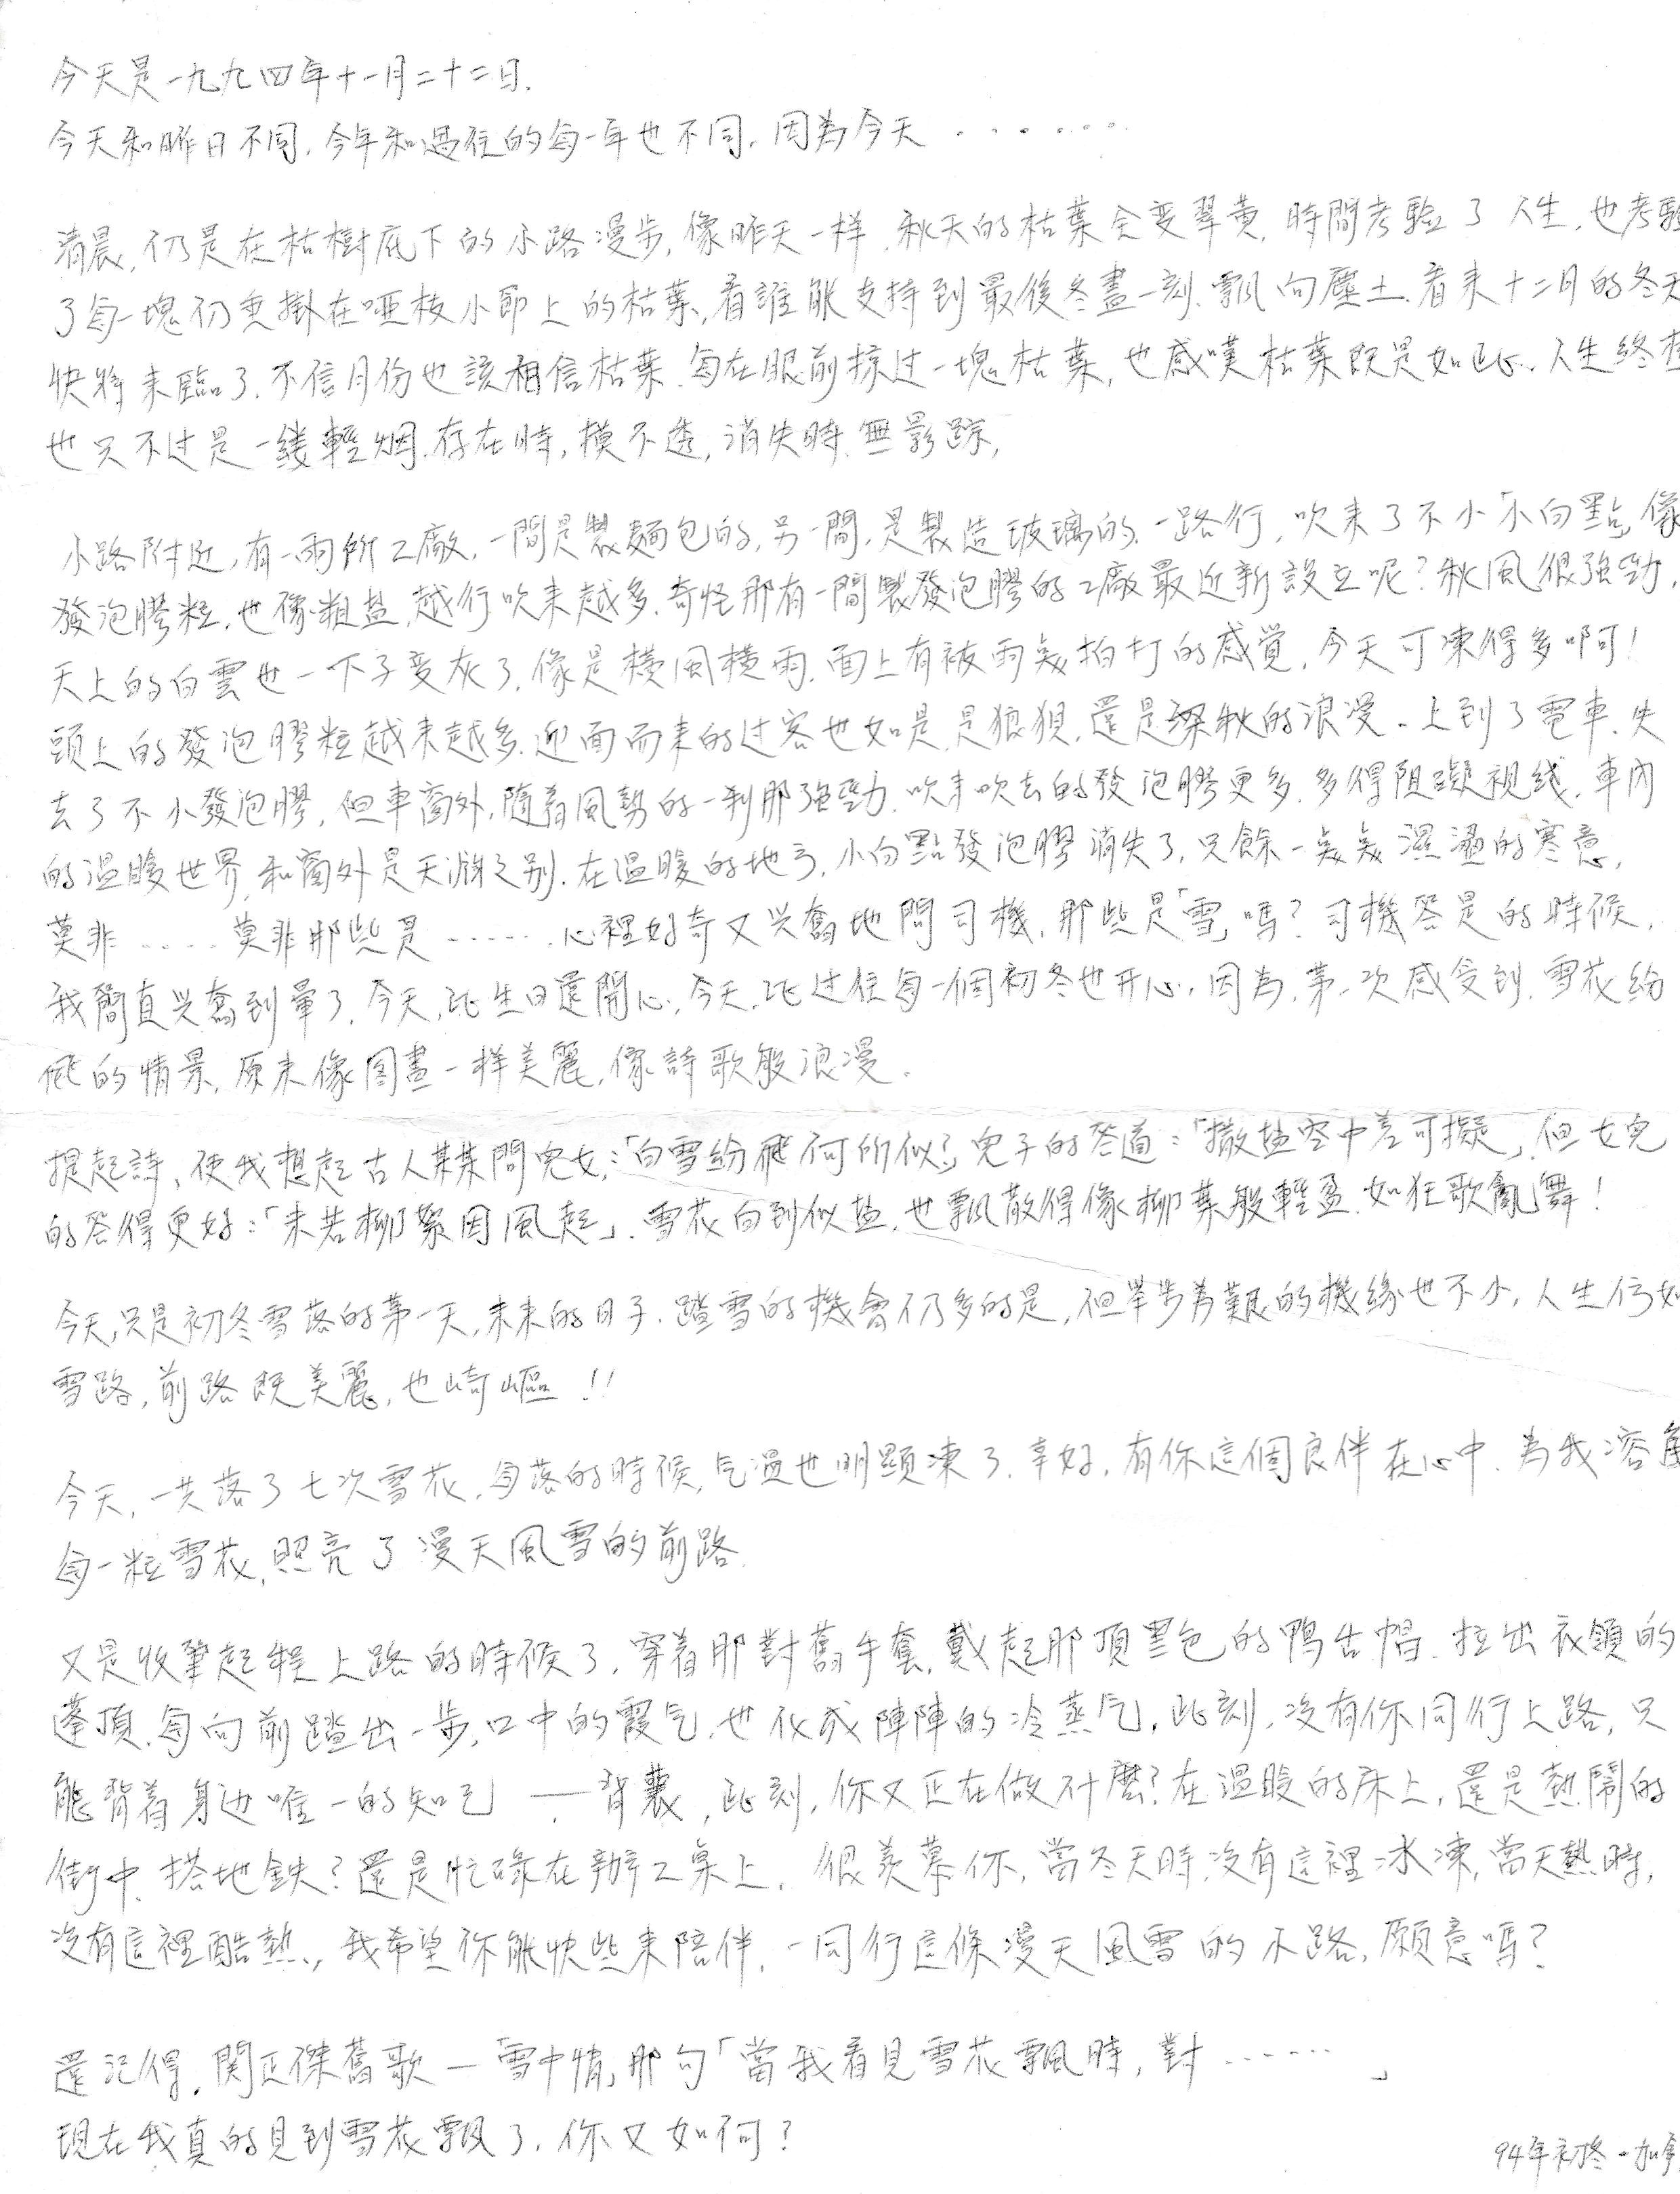 今天是一九九四年十一月二十二日.
今天和昨日不同,今年和過往的每一年也不同,因為今天.......
清晨,仍是在枯樹底下的小路漫步,像昨天一样,秋天的枯葉全变翠黄,時間考驗了人生,也考驗
了每一塊仍垂掛在啞枝小節上的枯葉,看誰能支持到最後冬盡一刻,飄向塵土.看来十二月的冬天
快將来臨了.不信月份也該相信枯葉.每在眼前掠过一塊枯葉,也感嘆枯葉既是如此,人生終極
也只不过是一缕輕烟.存在時,摸不透,消失時,無影踪,
小路附近,有一兩所工廠,一間是製麵包的,另一間,是製造玻璃的.一路行,吹来了不小「小白點」,像
發泡膠粒,也像粗盐,越行吹来越多.奇怪那有一間製發泡膠的工廠最近新設立呢?秋風很強勁,
天上的白雲也一下子变灰了,像是橫風橫雨,面上有被雨点拍打的感覚,今天可凍得多啊!
頭上的發泡膠粒越来越多.迎面而来的过客也如是,是狼狽,還是深秋的浪漫.上到了電車,失
去了不小發泡膠,但車窗外,隨着風勢的一刹那強勁,吹来吹去的發泡膠更多.多得阻礙視线,車內
的温暖世界,和窗外是天淵之别.在温暖的地方,小白點發泡膠消失了,只餘一点点濕濕的寒意,
莫非.....莫非那些是.......心裡好奇又兴奮地問司機,那些是「雪」嗎?司機答是的時候,
我簡直兴奮到暈了,今天,比生日還開心,今天,比过往每一個初冬也开心,因為,第一次感受到,雪花紛
飛的情景,原来像图畫一样美麗,像詩歌般浪漫.
提起詩,使我想起古人某某問兒女:「白雪紛飛何所似?」兒子的答道:「撒盐空中差可擬」,但女兒
的答得更好:「未若柳絮因風起」.雪花白到似盐,也飄散得像柳葉般輕盈.如狂歌亂舞!
今天,只是初冬雪落的第一天,未来的日子,踏雪的機會仍多的是,但举步為艱的機緣也不小,人生仿如
雪路,前路既美麗,也崎嶇!!
今天,一共落了七次雪花,每落的時候,气温也明顕凍了.幸好,有你這個良伴在心中,為我溶
每一粒雪花,照亮了漫天風雪的前路.
又是收筆起程上路的時候了,穿着那對舊手套,戴起那頂黑色的鴨舌帽,拉出衣領的
蓬頂,每向前踏出一步,口中的霞气,也化成陣陣的冷蒸气,此刻,没有你同行上路,只
能背着身边唯一的知己——背囊,此刻,你又正在做什麼?在温暖的床上,還是熱鬧的
街中,搭地鉄?還是忙碌在辦工桌上.很羡慕你,當冬天時,没有這裡冰凍,當天熱時,
没有這裡酷熱,我希望你能快些来陪伴,一同行這條漫天風雪的小路,願意嗎?
還記得,関正傑舊歌—「雪中情」,那句「當我看見雪花飄時,對......」
現在我真的見到雪花飄了,你又如何?
94年初冬-加拿